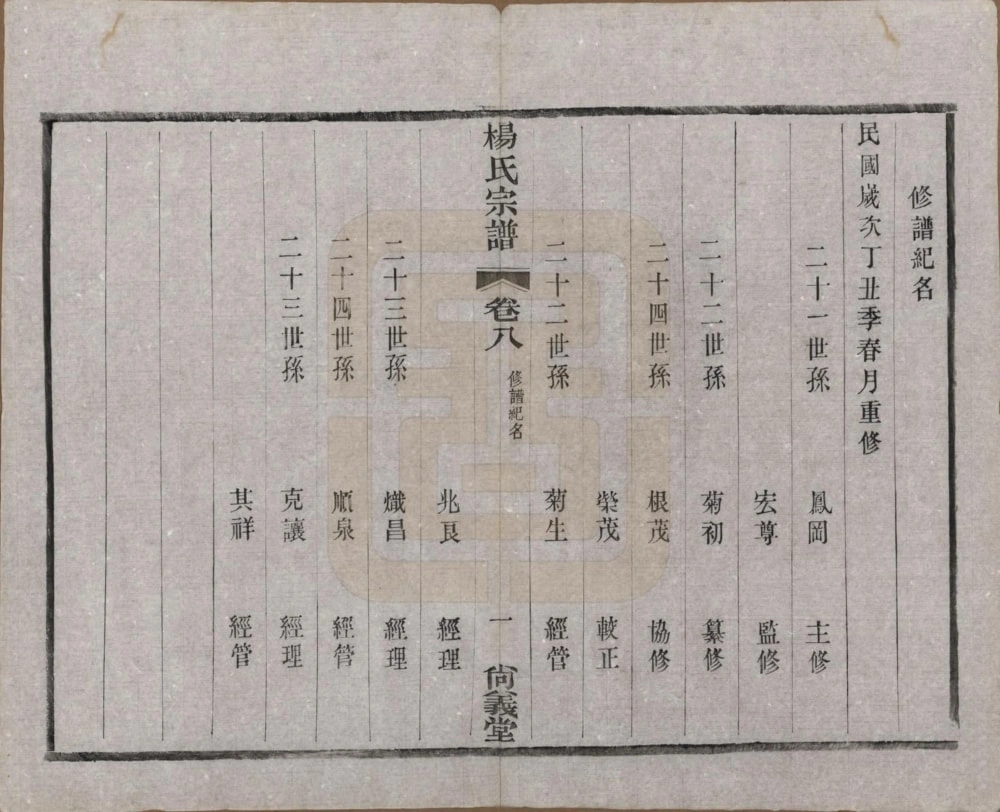 修譜紀名
民國歲次丁丑季春月重修
二十一世孫 鳳岡 主修
宏尊 監修
二十二世孫 菊初 纂修
二十四世孫 根茂 協修
榮茂 較正
二十二世孫 菊生 經管
楊氏宗譜 卷八 修譜紀名 一 尙義堂
兆良 經理
二十三世孫 熾昌 經理
二十四世孫 順泉 經管
二十三世孫 克讓 經理
其祥 經管